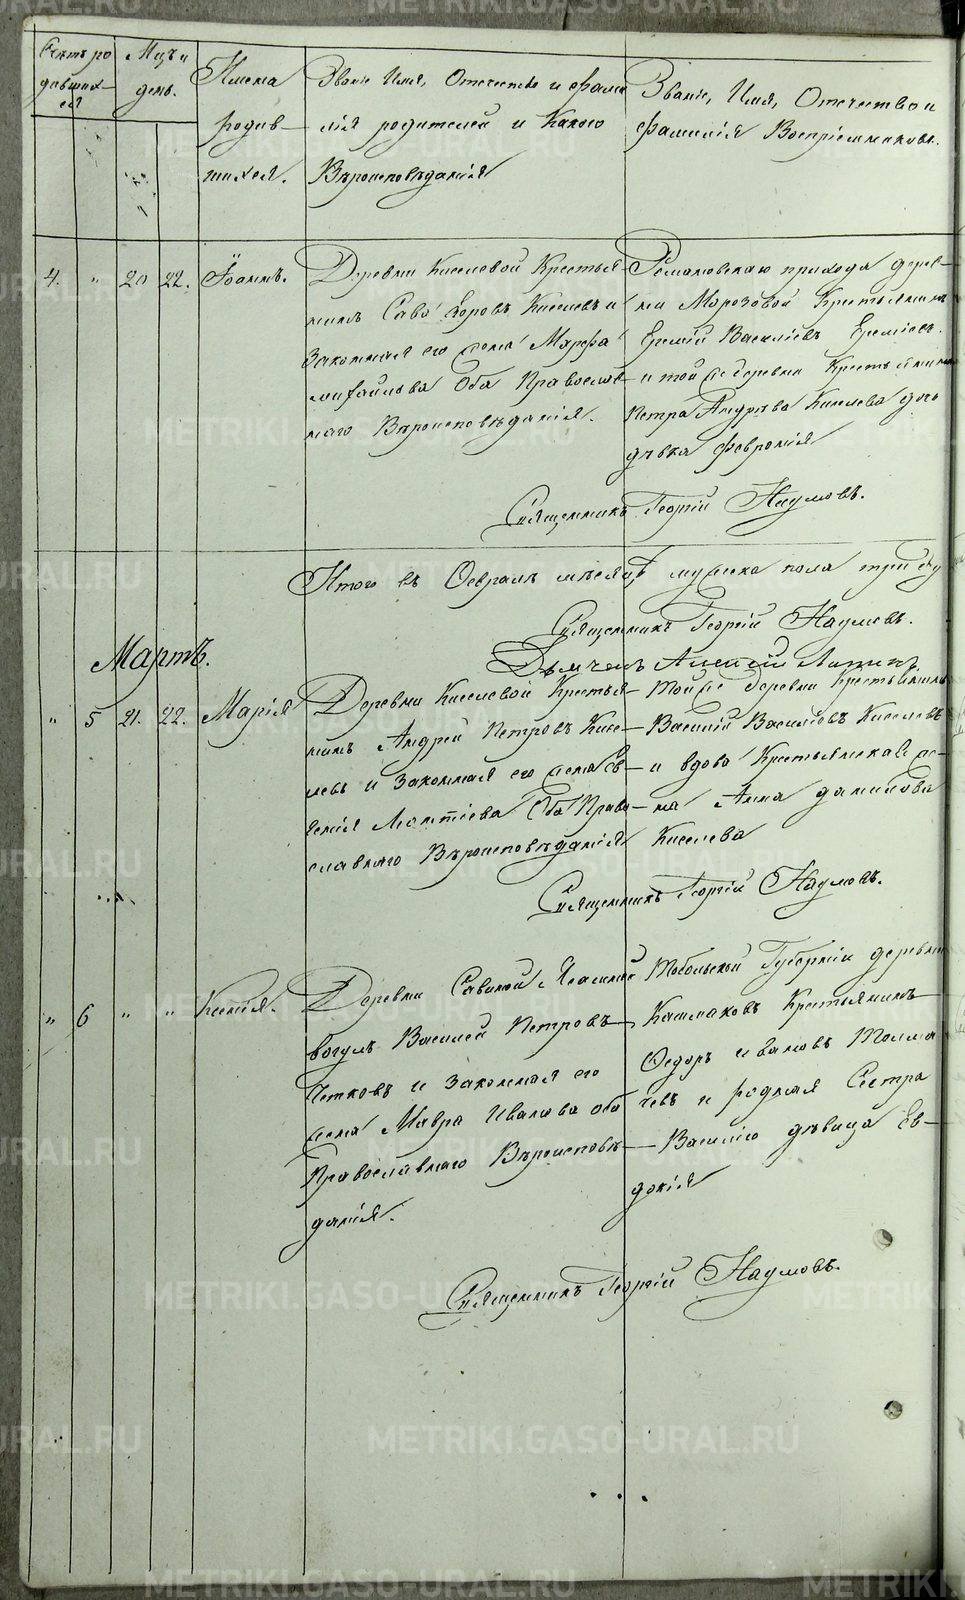 Счетъ ро
дивших-
ся
Мцъ и
день.
Имена
родив-
шихся.
Званіе Имя, Отечество и фами
лія родителей и Какого
Вѣроисповѣданія
Званіе, Имя, Отечество и
фамилія Воспріемниковъ.
4. " 20 22. Іоаннъ.
Деревни Киселевой Крестья
нинъ Сава Киселевъ и
Законная его жена Марфа
михайлова Оба Православ
наго Вѣроисповѣданія.
прихода дерев-
ни Морозовой Крестьянинъ
Василіевъ
и той же деревни Крестьянина
Петра Андреева Киселева дочь
дѣвка Февронія
Священникъ Георгій Наумовъ.
Итого въ Февралѣ мѣсяцѣ мужеска пола три
Священникъ Георгій Наумовъ.
Дьячекъ Алексій
Мартъ.
" 5 21. 22. Марія
Деревни Киселевой Крестья-
нинъ Андрей Петровъ Кисе-
левъ и Законная его жена Ев-
генія Леонтіева Оба Право-
славнаго Вѣроисповѣданія
той же деревни Крестьянинъ
Василій Василіевъ Киселевъ
и вдова Крестьянская же-
на Анна данилова
Киселева
Священникъ Георгій Наумовъ.
" 6 " " Ксенія.
Деревни Савиной Ясашной
вогулъ Василей Петровъ
и законная его
жена Мавра Иванова оба
Православнаго Вѣроисповѣ-
данія.
Тобольской Губерніи деревни
Кашмаковъ Крестьянинъ
Федоръ ивановъ Толма
чевъ и родная Сестра
Василію дѣвица Ев-
докія
Священникъ Георгій Наумовъ.
METRIKI.GASO-URAL.RU